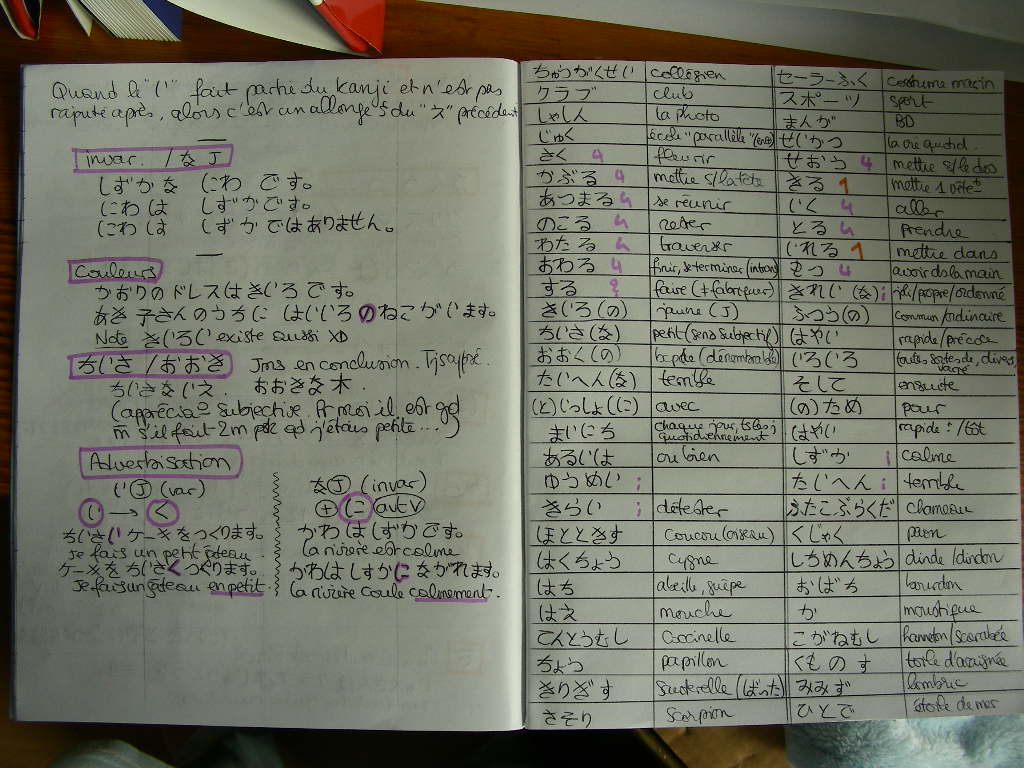 Quand le "い" fait partie du kanji et n'est pas
rajouté après, alors c'est un allonge
du "え" précédent
invar. /な J
しずかな にわ です。
にわは しずかです。
にわは しずかではありません。
Couleurs
かおりのドレスはきいろです。
あき子さんのうちに はいいろのねこがいます。
Note きいろい existe aussi XD
ちいさ/おおき Jms en conclusion.
ちいさないえ. おおきな木.
subjective. Pr moi il est gd
m̄ s'il fait 2m j'étais petite...)
Adverbisation
い J (var)
い → く
ちいさいケーキをつくります。
Je fais un petit gâteau.
ケーキをちいさくつくります。
Je fais un gâteau en petit.
な J (invar)
+ に aut V
かわはしずかです。
la rivière est calme
かわはしずかに ながれます。
la rivière coule calmement.
ちゅうがくせい collégien セーラーふく costume marin
クラブ club スポーツ sport
しゃしん la photo まんが BD
じゅく école "parallèle" せいかつ la vie quotid.
さく 4 fleurir せおう 4 mettre s/le dos
かぶる 4 mettre s/la tête きる 1 mettre 1 vêtt
あつまる 4 se réunir いく 4 aller
のこる 4 rester とる 4 prendre
わたる 4 traverser いれる 1 mettre dans
おわる 4 finir, se terminer (intrans) もつ 4 avoir ds la main
する ? faire (+ fabriquer) きれい (な) ; joli/propre/ordonné
きいろ (の) jaune (J) ふつう (の) commun/ordinaire
ちいさ (な) petit (sens subjectif) はやい rapide/précoce
おおく (の) (dénombrable) いろいろ toutes sortes de, divers, varié
たいへん (な) terrible そして ensuite
(と) いっしょ (に) avec (の) ため pour
まいにち chaque jour, ts les j quotidiennement はやい rapide : /tôt
あるいは ou bien しずか ; calme
ゆうめい ; たいへん ; terrible
きらい ; détester ふたこぶらくだ chameau
ほととぎす coucou (oiseau) くじゃく paon
はくちょう cygne しちめんちょう dinde/dindon
はち abeille, guêpe おばち bourdon
はえ mouche か moustique
てんとうむし Coccinelle こがねむし hanneton/scarabée
ちょう papillon くものす toile d'araignée
きりぎす sauterelle (ばった) みみず lombric
さそり scorpion ひとで étoile de mer